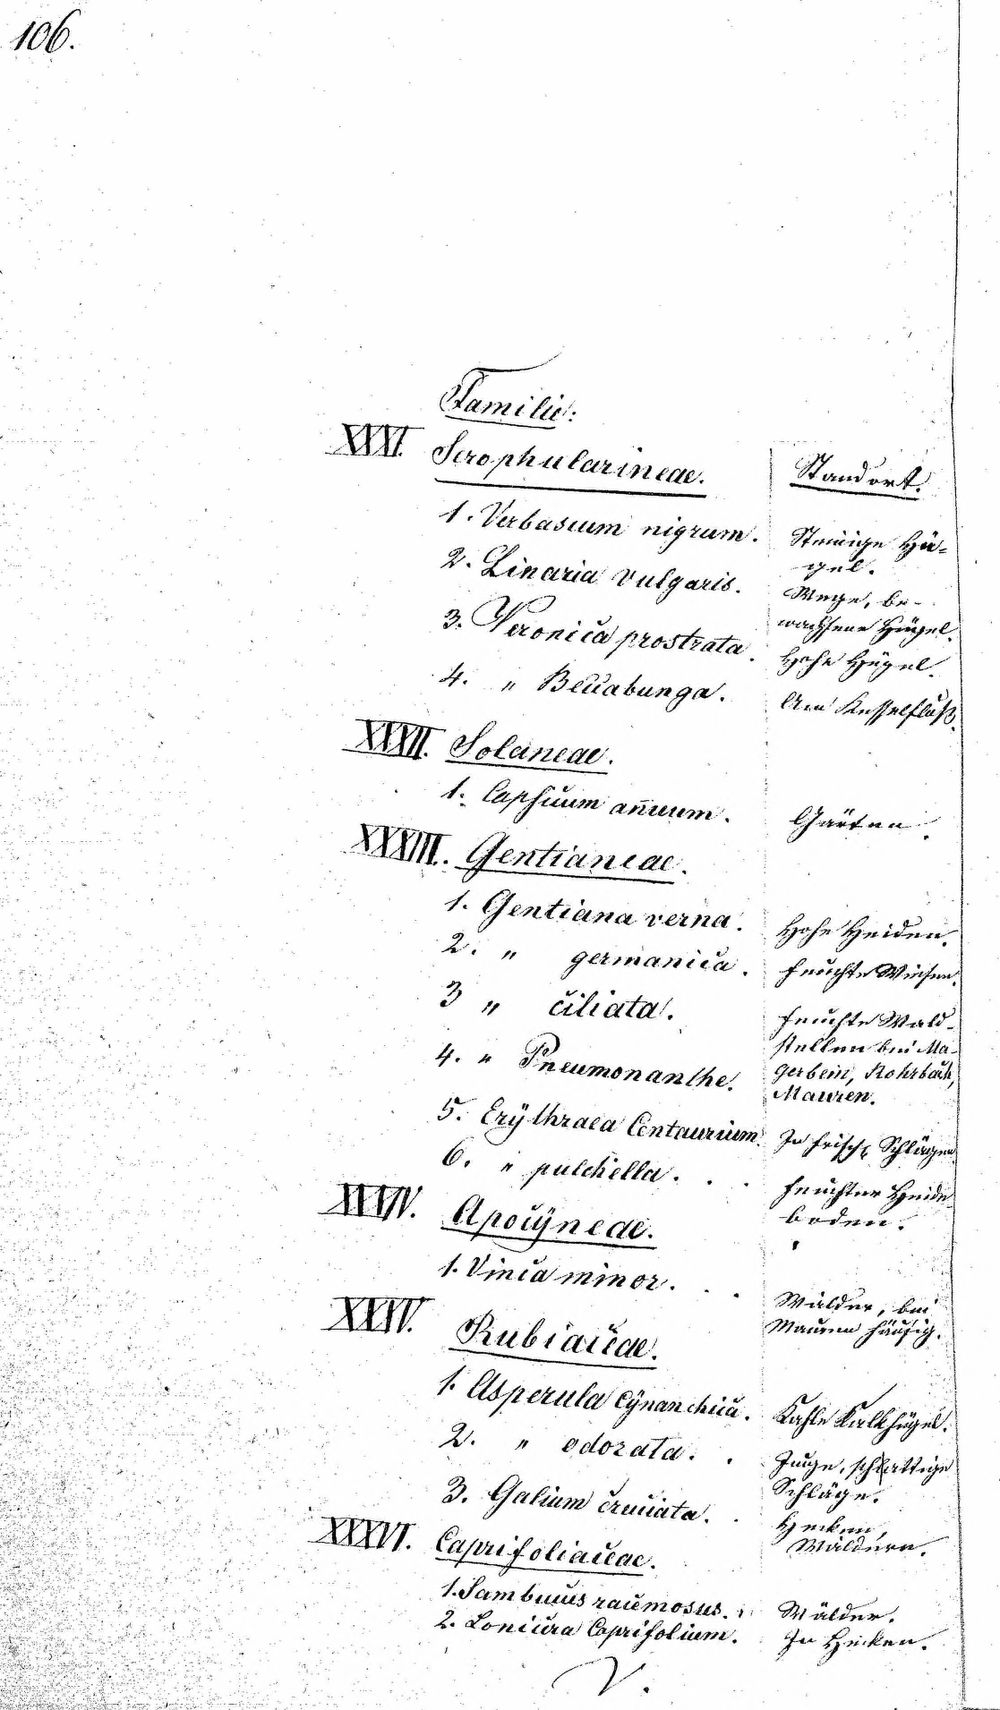 106.
Familie:
XXXI. Scrophularineae.
Standort.
1. Verbascum nigrum.
Steinige Hü-
gel.
2. Linaria vulgaris.
Wege, be-
wachsene Hügel.
3. Veronica prostrata.
Hohe Hügel.
4. " Beccabunga.
Am Kesselfluß.
XXXII. Solaneae.
1. Capsicum anuum.
Gärten.
XXXIII. Gentianeae.
1. Gentiana verna.
Hohe Heiden.
2. " germanica.
Feuchte Wiesen.
3 " ciliata.
Feuchte Wald-
stellen bei Ma-
4. " Pneumonanthe.
gerbein, Rohrbach,
Mauren.
5. Erythraea Centaurium.
In frisch. Schlägen
6. " pulchella.
Feuchter Heide-
boden.
XXXIV. Apocyneae.
1. Vinca minor.
Wälder, bei
Mauren häufig.
XXXV. Rubiaceae.
1. Asperula cynanchica.
Kahle Kalkhügel.
2. " odorata.
Junge, schattige
Schläge.
3. Galium cruciata.
Hecken,
Wäldern.
XXXVI. Caprifoliaceae.
1. Sambucus racemosus.
Wälder.
2. Lonicera Caprifolium.
In Hecken.
V.